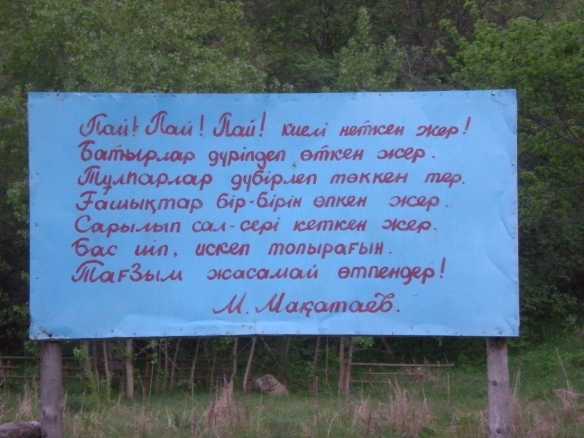 Пай! Пай! Пай! киелі неткен жер!
Батырлар дүріпдеп өткен жер.
Тұлпарлар дүбірлеп төккен тер.
Ғашықтар бір-бірін өпкен жер.
Сарылып сал-сері кеткен жер.
Бас иіп, искеп топырағын.
Тағзым жасамай өтпендер!
М. Мақатаев.